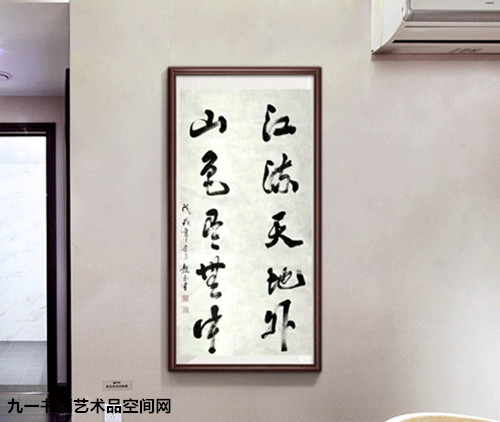 江流天地外
山色有無中
戊戌年
九一书画艺术品空间网